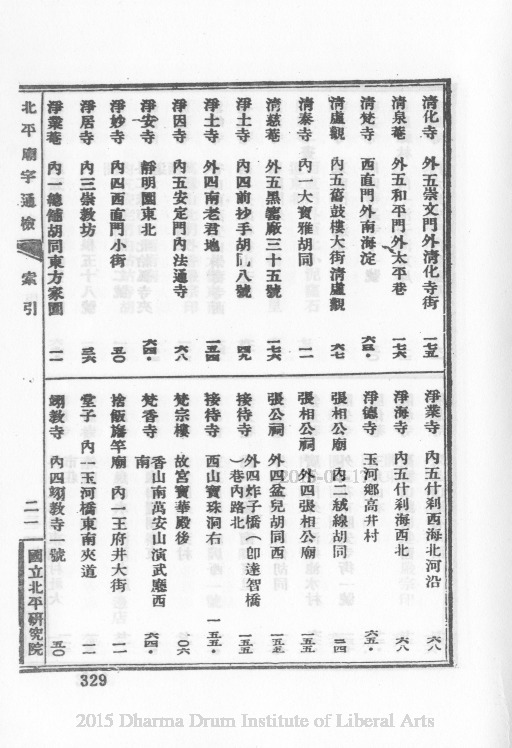 清化寺 外五崇文門外清化寺街 一七五
清泉菴 外五和平門外太平巷 一七六
清梵寺 西直門外南海淀 六三•
清虛觀 內五舊鼓樓大街清虛觀 六七
清泰寺 內一大寶雅胡同 一一
清慈菴 外五黑窰廠三十五號 一七六
淨土寺 內四前抄手胡同八號 四九
淨土寺 外四南老君地 一五四
淨因寺 內五安定門內法通寺 六八
淨安寺 靜明園東北 六四•
淨妙寺 內四西直門小街 五〇
淨居寺 內三崇教坊 三六
淨業菴 內一總舖胡同東方家園 一一
淨業寺 內五什刹西海北河沿 六八
淨海寺 內五什刹海西北 六八
淨德寺 玉河鄉高井村 六五•
張相公廟 內二絨線胡同 二四
張相公祠 外四張相公廟 一五五
張公祠 外四盆兒胡同西 一五七
接待寺 外四炸子橋(卽達智橋
)巷內路北 一五五
接待寺 西山寶珠洞右 一五五•
梵宗樓 故宮寶華殿後 一〇六
梵香寺 香山南萬安山演武廳西
南 六四•
捨飯旛竿廟 內一王府井大街 一一
堂子 內一玉河橋東南夾道 一一
翊教寺 內四翊教寺一號 五〇
北平廟宇通檢 索引 二一 國立北平研究院
329
2015 Dharma Drum Institute of Liberal Arts